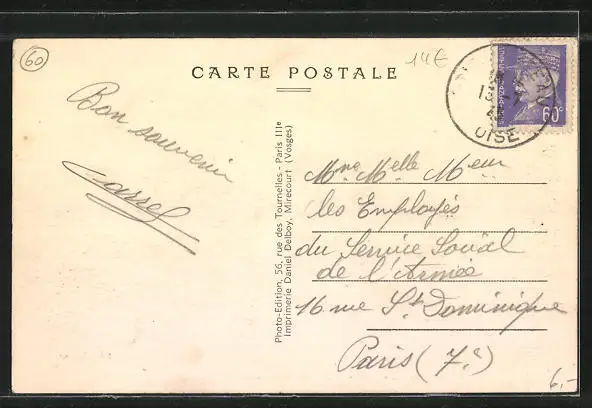 60
14€
CARTE POSTALE
13 -7
OISE
60c
Bon souvenir
Photo-Edition, 56, rue des Tournelles - Paris IIIe
Imprimerie Daniel Delboy, Mirecourt (Vosges)
Mme Melle Meur
les Employés
du Service Social
de l'Armée
16 rue St Dominique
Paris (7e)
6,-